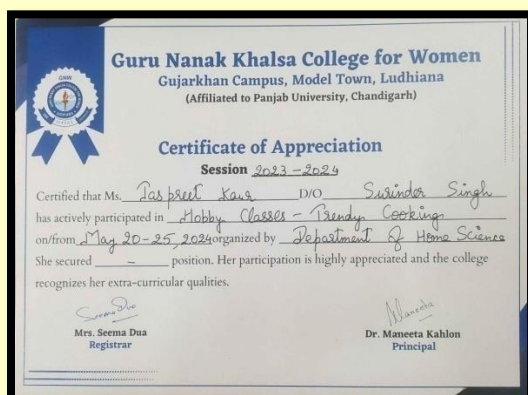 GNW
Guru Nanak Khalsa College for Women
Gujarkhan Campus, Model Town, Ludhiana
(Affiliated to Panjab University, Chandigarh)
Certificate of Appreciation
Session 2023-2024
Certified that Ms. Jaspreet Kaur D/O Surinder Singh
has actively participated in Hobby Classes - Trendy Cooking
on/from May 20-25, 2024 organized by Department of Home Science
She secured - position. Her participation is highly appreciated and the college
recognizes her extra-curricular qualities.
Seema Dua
Maneeta
Mrs. Seema Dua
Dr. Maneeta Kahlon
Registrar
Principal